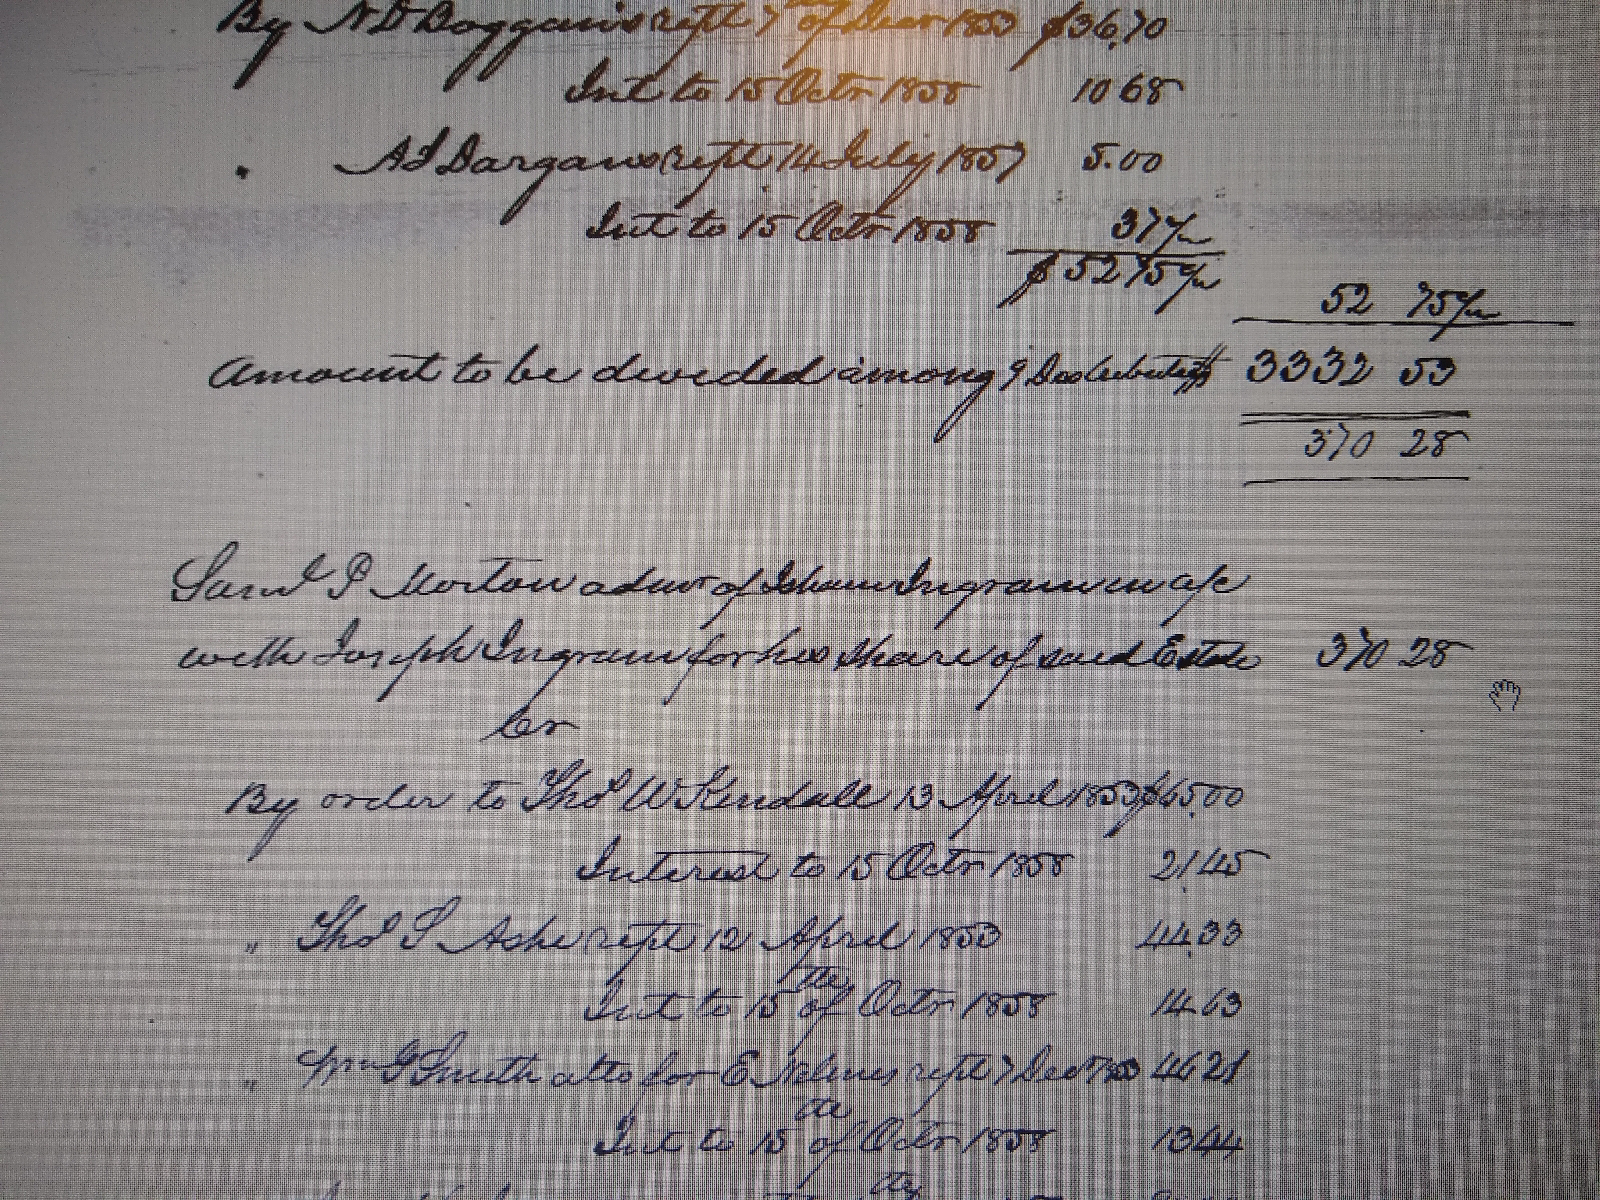 By N D Boggan's rept 7th of Decr 1853 $36,70
Int to 15 Octr 1858 10 68
A J Dargan's rept 14 July 1857 5.00
Int to 15 Octr 1858 37½
$52 75½
52 75½
Amount to be devided among 9 3332 53
370 28
Saml P Morton admr of Ingram in a/c
with Joseph Ingram for his share of said Estate 370 28
Cr
By order to Thos W Kendall 13 April 1853 $65,00
Interest to 15 Octr 1858 21,45
" Thos S Ashe rept 12 April 1853 44,33
Int to 15th of Octr 1858 14.63
" Wm G Smith atto for E rept 7 Decr 46 21
Int to 15th of Octr 1858 13 44